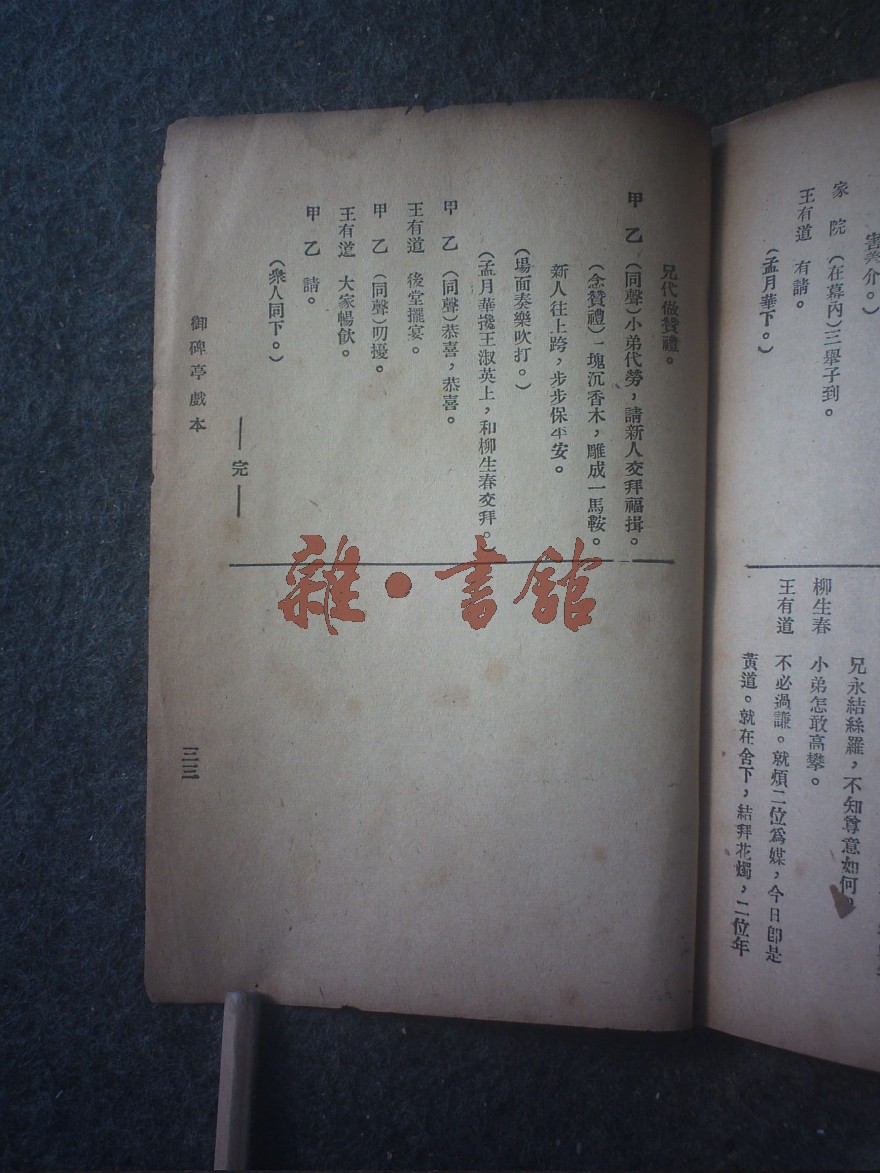 家　院　（在幕內）三舉子到。
王有道　有請。
（孟月華下。）
兄永結絲羅，不知尊意如何。
柳生春　小弟怎敢高攀。
王有道　不必過謙。就煩二位爲媒，今日卽是
黃道。就在舍下，結拜花燭，二位年
兄代做贊禮。
甲　乙　（同聲）小弟代勞，請新人交拜福揖。
（念贊禮）一塊沉香木，雕成一馬鞍。
新人往上跨，步步保平安。
（場面奏樂吹打。）
（孟月華攙王淑英上，和柳生春交拜。）
甲　乙　（同聲）恭喜，恭喜。
王有道　後堂擺宴。
甲　乙　（同聲）叨擾。
王有道　大家暢飲。
甲　乙　請。
（衆人同下。）
——完——
御碑亭戲本
三三
雜·書館